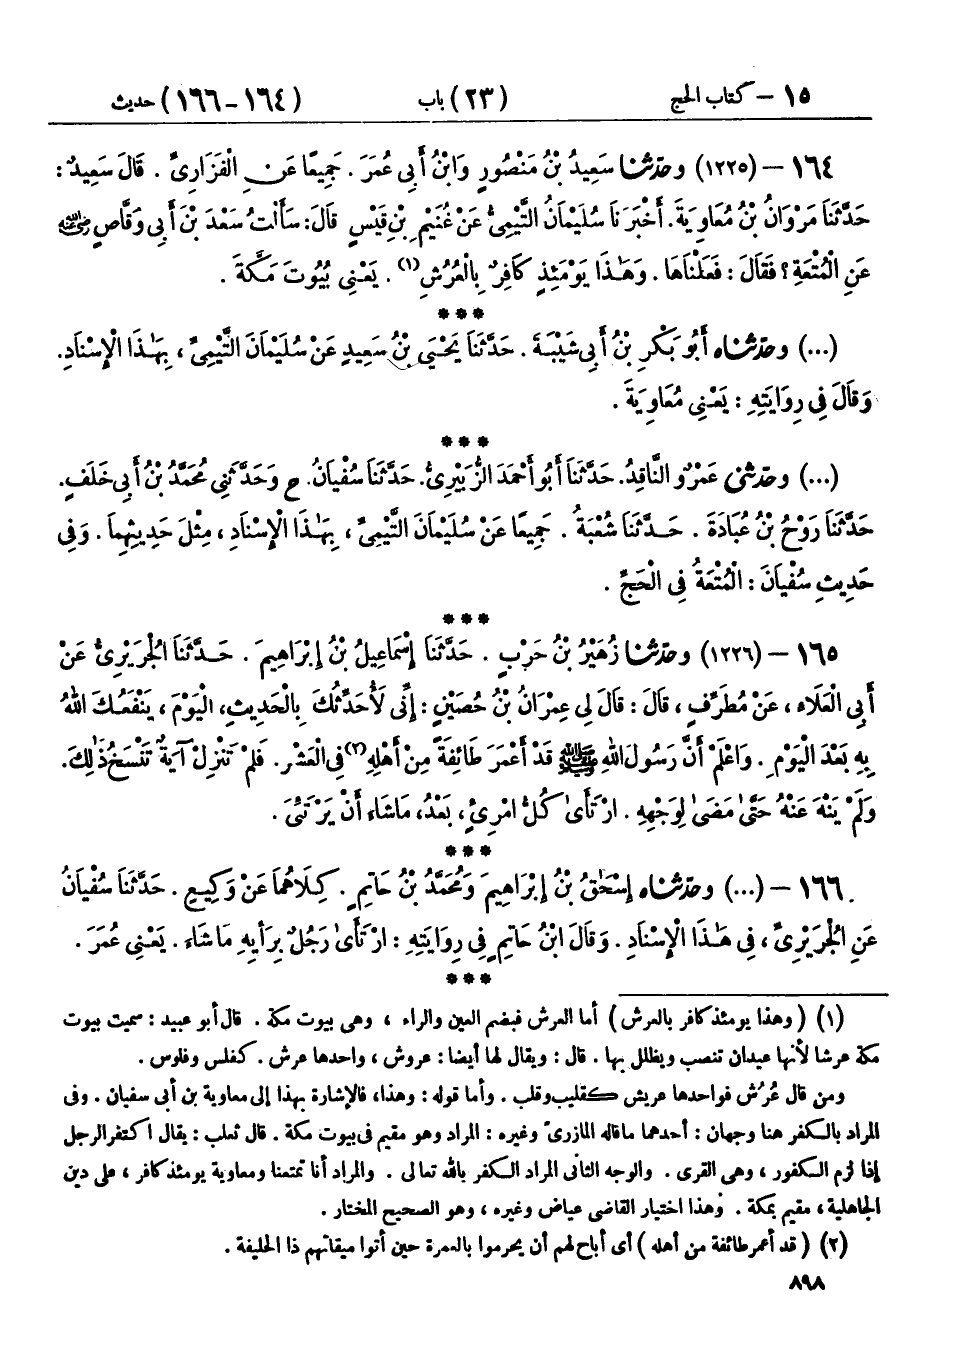 ١٥ – كتاب الحج (٢٣) باب (١٦٤-١٦٦) حديث
١٦٤ – (١٢٢٥) وحدثنا سَعِيدُ بْنُ مَنْصُورٍ وَابْنُ أَبِي عُمَرَ . جَمِيعًا عَنِ الْفَزَارِيِّ . قَالَ سَعِيدٌ :
حَدَّثَنَا مَرْوَانُ بْنُ مُعَاوِيَةَ. أَخْبَرَنَا سُلَيْمَانُ التَّيْمِيُّ عَنْ غُنَيْمِ بْنِ قَيْسٍ قَالَ: سَأَلْتُ سَعْدَ بْنَ أَبِي وَقَّاصٍ رضي الله عنه
عَنِ الْمُتْعَةِ ؟ فَقَالَ : فَعَلْنَاهَا . وَهَٰذَا يَوْمَئِذٍ كَافِرٌ بِالْعُرُشِ(١) . يَعْنِي بُيُوتَ مَكَّةَ .
***
(...) وحدثناه أَبُو بَكْرِ بْنُ أَبِي شَيْبَةَ . حَدَّثَنَا يَحْيَى بْنُ سَعِيدٍ عَنْ سُلَيْمَانَ التَّيْمِيِّ ، بِهَٰذَا الْإِسْنَادِ.
وَقَالَ فِي رِوَايَتِهِ : يَعْنِي مُعَاوِيَةَ .
***
(...) وحدثني عَمْرٌو النَّاقِدُ. حَدَّثَنَا أَبُو أَحْمَدَ الزُّبَيْرِيُّ. حَدَّثَنَا سُفْيَانُ. ح وَحَدَّثَنِي مُحَمَّدُ بْنُ أَبِي خَلَفٍ.
حَدَّثَنَا رَوْحُ بْنُ عُبَادَةَ . حَدَّثَنَا شُعْبَةُ . جَمِيعًا عَنْ سُلَيْمَانَ التَّيْمِيِّ ، بِهَٰذَا الْإِسْنَادِ ، مِثْلَ حَدِيثِهِمَا . وَفِي
حَدِيثِ سُفْيَانَ : الْمُتْعَةُ فِي الْحَجِّ .
***
١٦٥ – (١٢٢٦) وحدثنا زُهَيْرُ بْنُ حَرْبٍ . حَدَّثَنَا إِسْمَاعِيلُ بْنُ إِبْرَاهِيمَ . حَدَّثَنَا الْجُرَيْرِيُّ عَنْ
أَبِي الْعَلَاءِ ، عَنْ مُطَرِّفٍ ، قَالَ : قَالَ لِي عِمْرَانُ بْنُ حُصَيْنٍ : إِنِّي لَأُحَدِّثُكَ بِالْحَدِيثِ، الْيَوْمَ ، يَنْفَعُكَ اللهُ
بِهِ بَعْدَ الْيَوْمِ . وَاعْلَمْ أَنَّ رَسُولَ اللهِ ﷺ قَدْ أَعْمَرَ طَائِفَةً مِنْ أَهْلِهِ(٢) فِي الْعَشْرِ. فَلَمْ تَنْزِلْ آيَةٌ تَنْسَخُ ذَٰلِكَ.
وَلَمْ يَنْهَ عَنْهُ حَتَّىٰ مَضَىٰ لِوَجْهِهِ . ارْتَأَىٰ كُلُّ امْرِئٍ ، بَعْدُ، مَا شَاءَ أَنْ يَرْتَئِيَ .
***
١٦٦ – (...) وحدثناه إِسْحَٰقُ بْنُ إِبْرَاهِيمَ وَمُحَمَّدُ بْنُ حَاتِمٍ . كِلَاهُمَا عَنْ وَكِيعٍ . حَدَّثَنَا سُفْيَانُ
عَنِ الْجُرَيْرِيِّ ، فِي هَٰذَا الْإِسْنَادِ . وَقَالَ ابْنُ حَاتِمٍ فِي رِوَايَتِهِ : ارْتَأَىٰ رَجُلٌ بِرَأْيِهِ مَا شَاءَ . يَعْنِي عُمَرَ .
***
(١) ( وهذا يومئذ كافر بالعرش ) أما العرش فبضم العين والراء ، وهى بيوت مكة . قال أبو عبيد : سميت بيوت
مكة عرشا لأنها عيدان تنصب ويظلل بها . قال : ويقال لها أيضا : عروش ، واحدها عرش . كفلس وفلوس .
ومن قال عُرُش فواحدها عريش كقليب وقلب . وأما قوله : وهذا، فالإشارة بهذا إلى معاوية بن أبى سفيان . وفى
المراد بالكفر هنا وجهان : أحدهما ماقاله المازرىّ وغيره : المراد وهو مقيم فى بيوت مكة . قال ثعلب : يقال اكتفر الرجل
إذا لزم الكفور ، وهى القرى . والوجه الثانى المراد الكفر بالله تعالى . والمراد أنا تمتعنا ومعاوية يومئذ كافر ، على دين
الجاهلية ، مقيم بمكة . وهذا اختيار القاضى عياض وغيره ، وهو الصحيح المختار .
(٢) ( قد أعمر طائفة من أهله ) أى أباح لهم أن يحرموا بالعمرة حين أتوا ميقاتهم ذا الحليفة .
٨٩٨